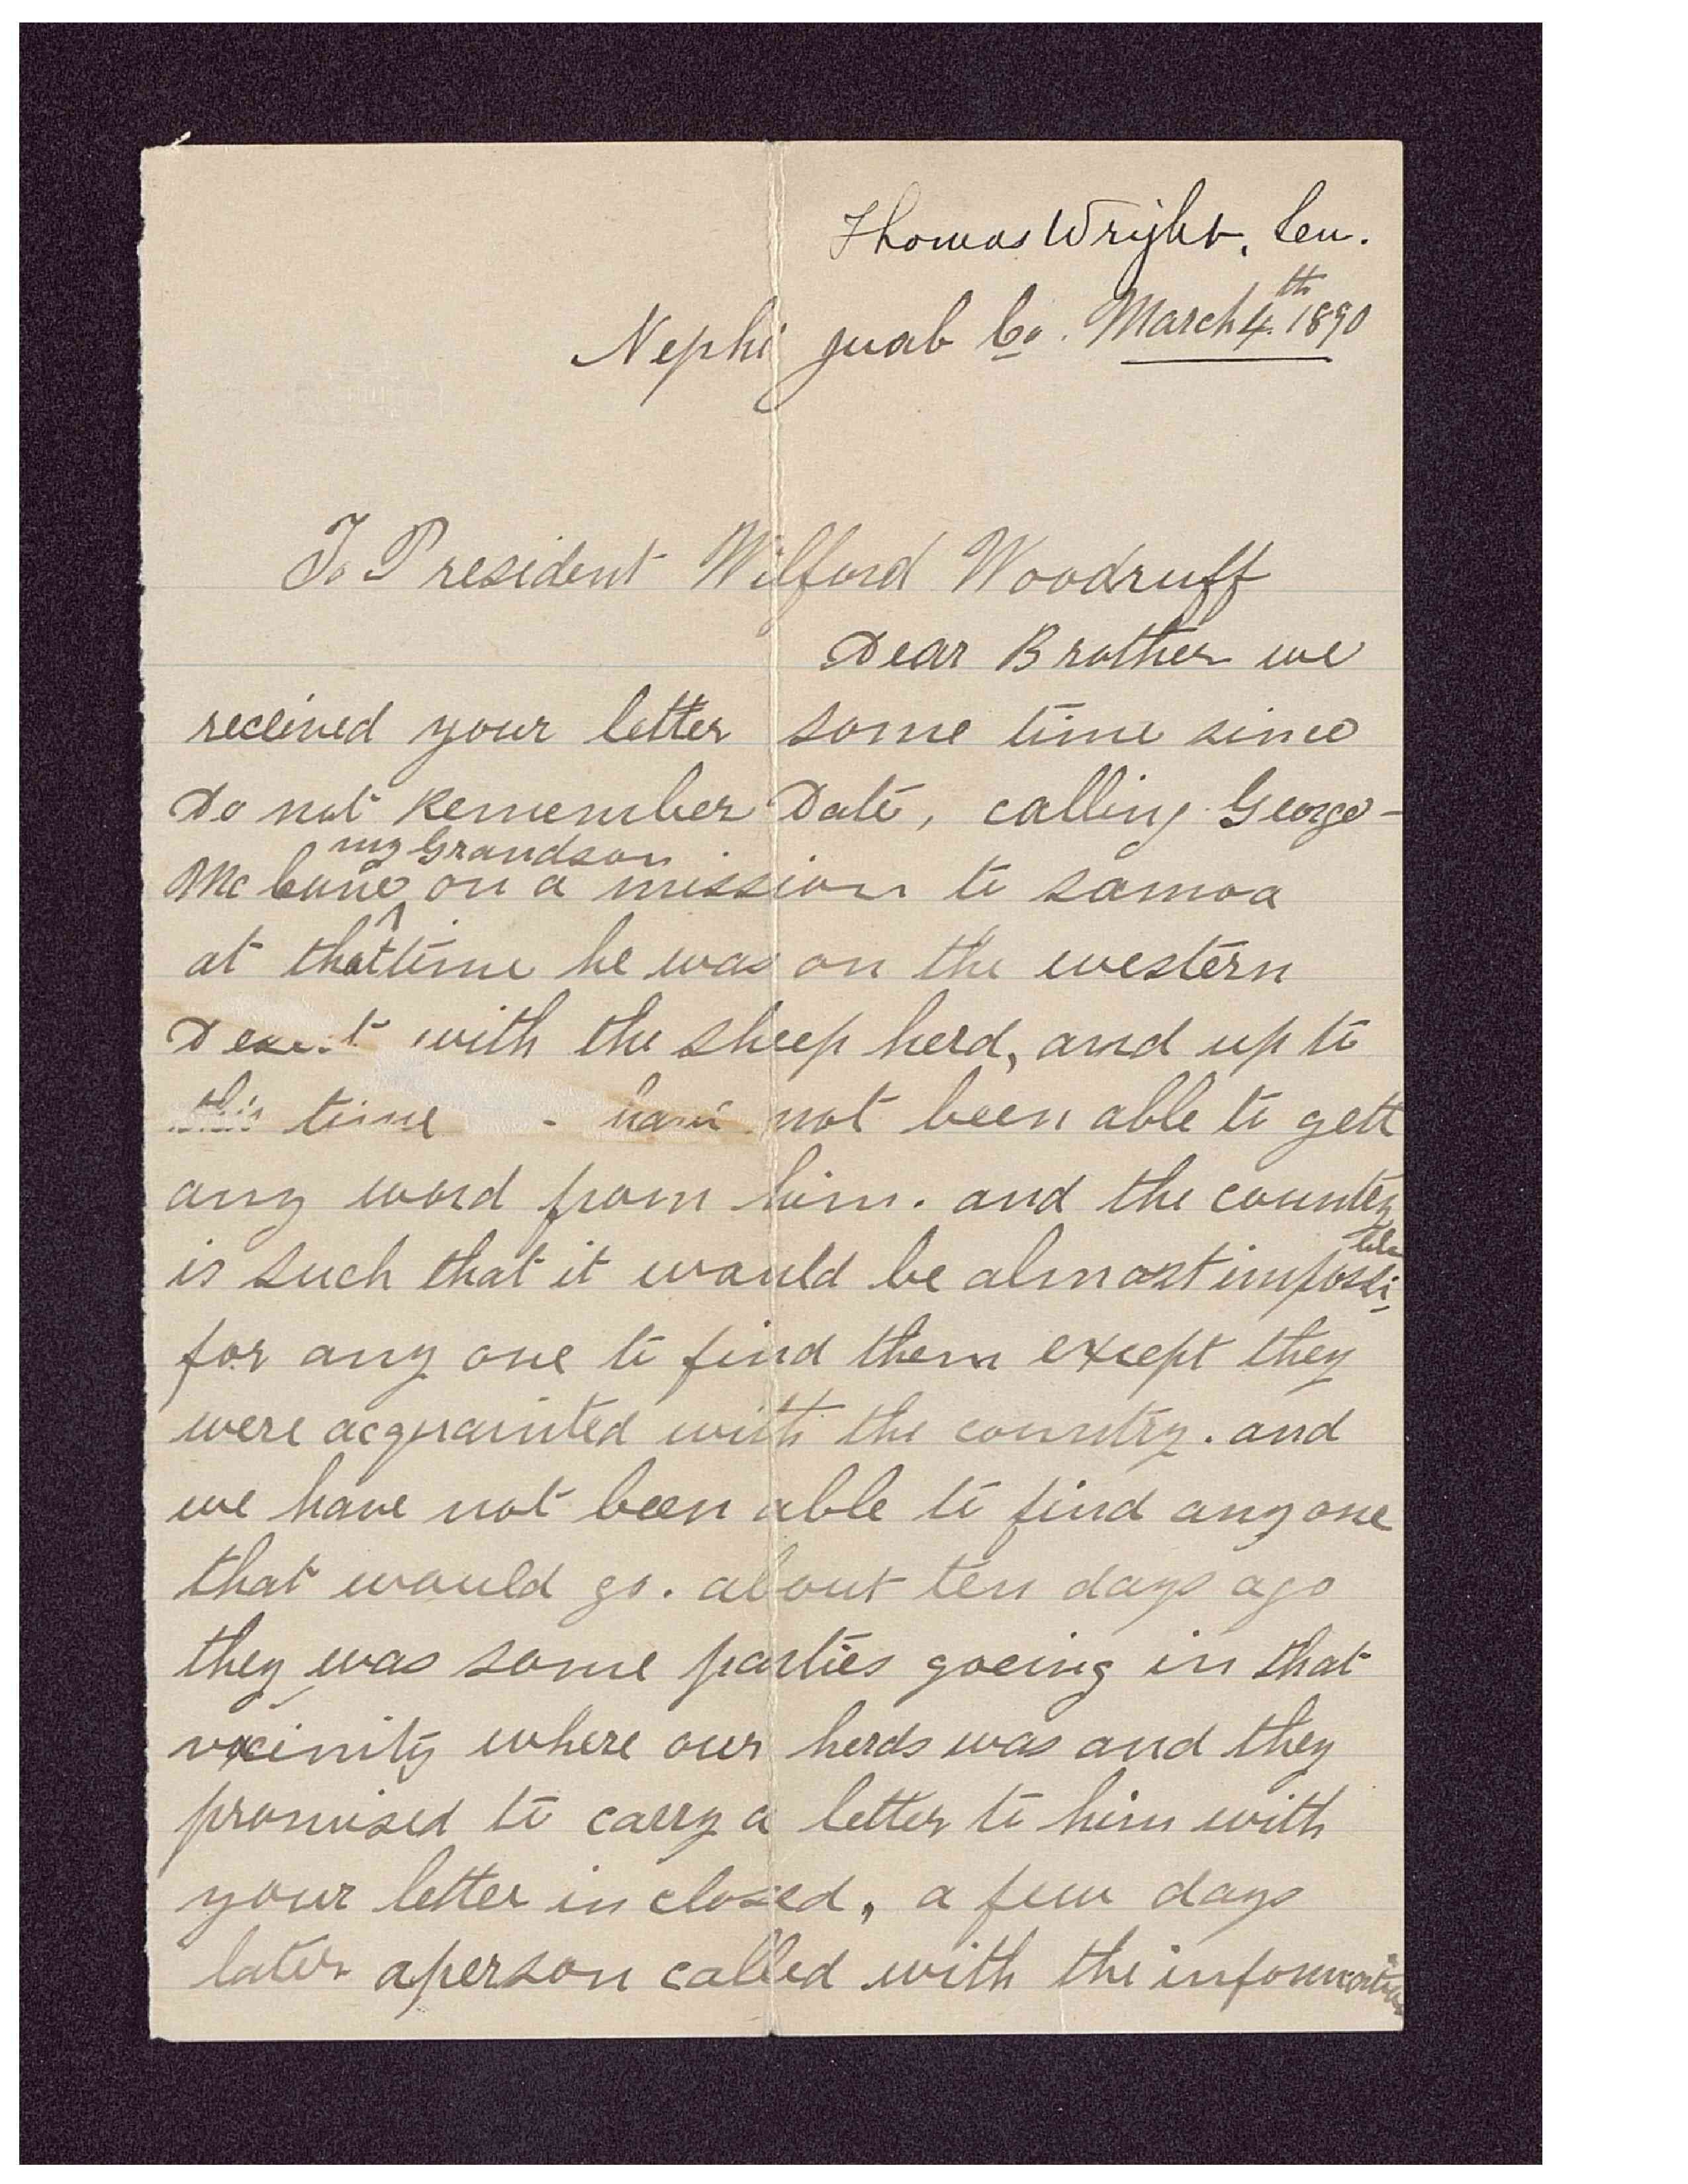 Thomas Wright, Sen.
Nephi Juab Co. March 4th 1890
To President Wilford Woodruff
Dear Brother we
received your letter some time since
Do not Remember Date, calling George
my Grandson
McCune ^ on a mission to samoa
at that time he was on the western
Desert with the sheep herd, and up to
this time have not been able to gett
any word from him. and the country
is such that it would be almost impossible
for any one to find them except they
were acquainted with the country. and
we have not been able to find any one
that would go. about ten days ago
they was some parties goeing in that
vicinity where our herds was and they
promised to carry a letter to him with
your letter in closed, a few days
later a person called with the information